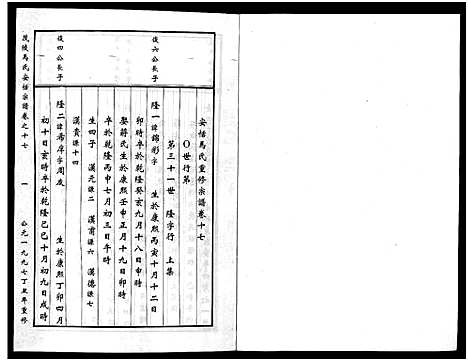 安恬馬氏重修宗譜卷十七
〇世行第
第三十一世 隆字行 上集
俊六公長子
隆一諱錦彩字 生於康熙丙寅十月十二日
卯時卒於乾隆癸亥九月十八日申時
娶蔣氏生於康熙壬申正月十九日卯時
卒於乾隆丙申七月初三日午時
生四子 漢元禄二 漢甫禄六 漢德禄七
漢貴禄十四
俊四公長子
隆二諱希庠字周友 生於康熙丁卯四月
初十日亥時卒於乾隆己巳十月初九日戌時
茂陵馬氏安恬宗譜卷之十七
一
公元一九九七丁丑年重修